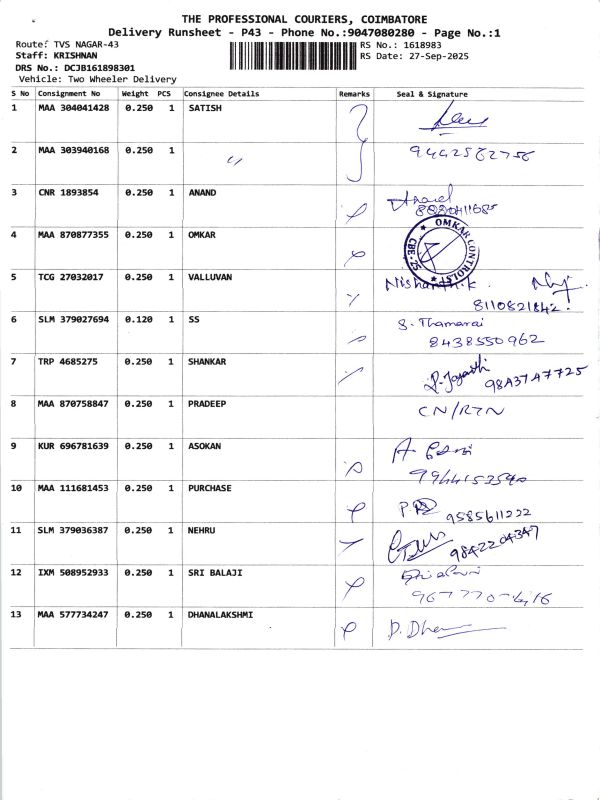 THE PROFESSIONAL COURIERS, COIMBATORE
Delivery Runsheet - P43 - Phone No.:9047080280 - Page No.:1
Route: TVS NAGAR-43 RS No.: 1618983
Staff: KRISHNAN RS Date: 27-Sep-2025
DRS No.: DCJB161898301
Vehicle: Two Wheeler Delivery
S No Consignment No Weight PCS Consignee Details Remarks Seal & Signature
1 MAA 304041428 0.250 1 SATISH
2 MAA 303940168 0.250 1 〃 9442562756
3 CNR 1893854 0.250 1 ANAND Anand
8880411685
4 MAA 870877355 0.250 1 OMKAR OMKAR CONTROLS CBE-25
5 TCG 27032017 0.250 1 VALLUVAN Nishanth.K
8110821842
6 SLM 379027694 0.120 1 SS S. Thamarai
8438550962
7 TRP 4685275 0.250 1 SHANKAR 9843747725
8 MAA 870758847 0.250 1 PRADEEP CN/RTN
9 KUR 696781639 0.250 1 ASOKAN
9944153540
10 MAA 111681453 0.250 1 PURCHASE 9585611222
11 SLM 379036387 0.250 1 NEHRU 9842204347
12 IXM 508952933 0.250 1 SRI BALAJI
13 MAA 577734247 0.250 1 DHANALAKSHMI D. Dha